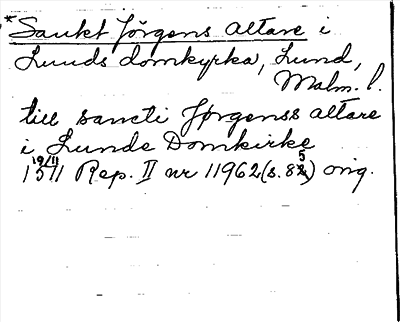 *Sankt Jörgens altare i
Lunds domkyrka, Lund,
Malm. l.
till sancti Jørgenss altare
i Lunde Domkirke
19/11 1511 Rep. II nr 11962 (s. 85) orig.